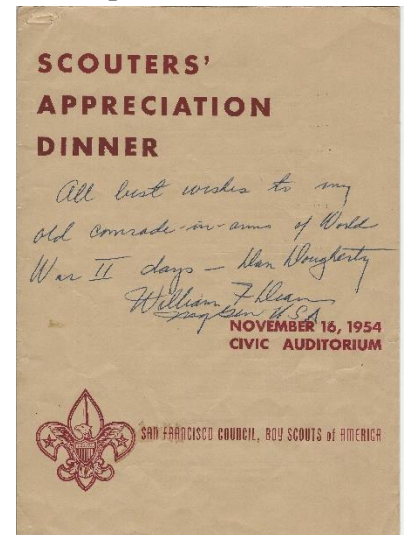 SCOUTERS'
APPRECIATION
DINNER
All best wishes to my
old comrade-in-arms of World
War II days — Dan Dougherty
William F Dean
Maj Gen USA
NOVEMBER 16, 1954
CIVIC AUDITORIUM
SAN FRANCISCO COUNCIL, BOY SCOUTS of AMERICA